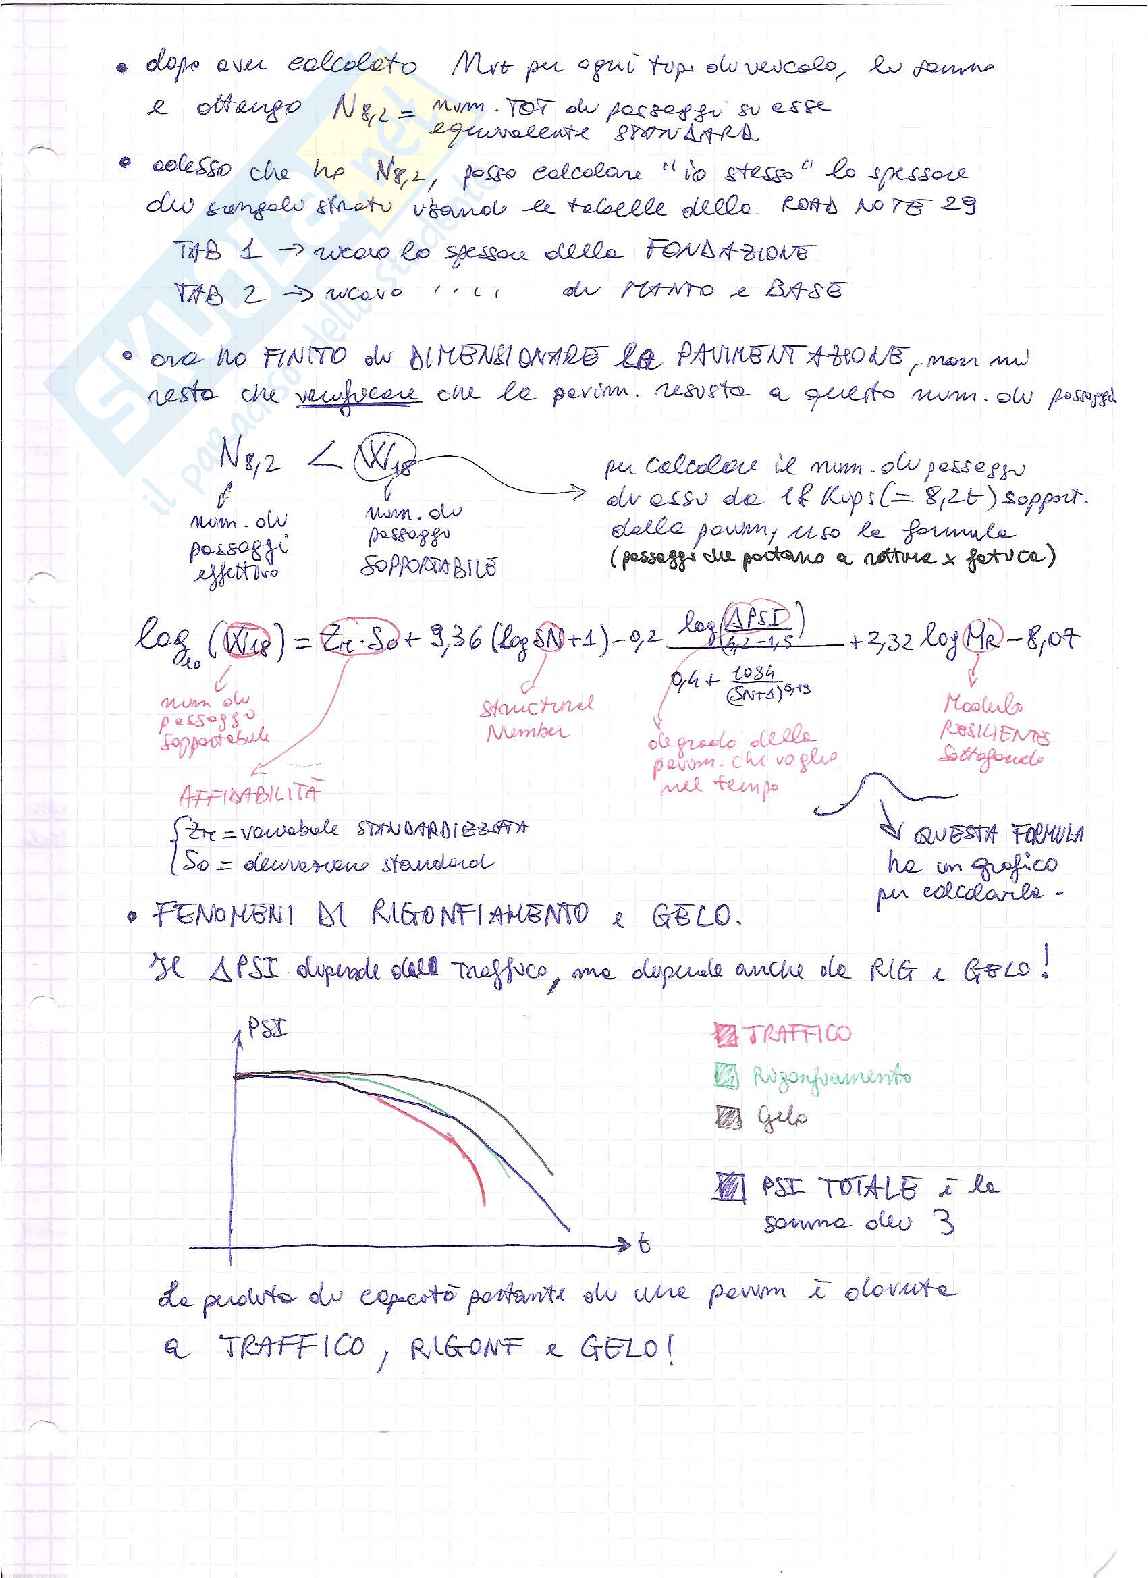 • dopo aver calcolato Mrt per ogni tipo di veicolo, li sommo
e ottengo N8,2 = num. TOT di passaggi su asse
equivalente STANDARD.
• adesso che ho N8,2, posso calcolare "io stesso" lo spessore
dei singoli strati usando le tabelle della ROAD NOTE 29
TAB 1 → ricavo lo spessore della FONDAZIONE
TAB 2 → ricavo ' ' ' ' ' di MANTO e BASE
• ora ho FINITO di DIMENSIONARE la PAVIMENTAZIONE, non mi
resta che verificare che la pavim. resista a questo num. di passaggi
N8,2 < W18
num. di
passaggi
effettivo
num. di
passaggi
SOPPORTABILE
per calcolare il num. di passaggi
di assi da 18 Kips (= 8,2t) sopport.
dalla pavim, uso la formula
(passaggi che portano a rottura x fatica)
log10 (W18) = Zr·S0 + 9,36 (log SN+1) - 0,2 log(ΔPSI / 4,2-1,5) / 0,4 + 1094/(SN+1)^5,19 + 2,32 log MR - 8,07
num di
passaggi
sopportabile
Structural
Number
degrado della
pavim. che voglio
nel tempo
Modulo
RESILIENTE
Sottofondo
AFFIDABILITÀ
{ Zr = variabile STANDARDIZZATA
{ S0 = deviazione standard
QUESTA FORMULA
ha un grafico
per calcolarla -
• FENOMENI DI RIGONFIAMENTO e GELO.
Il ΔPSI dipende dal Traffico, ma dipende anche da RIG e GELO!
PSI
t
TRAFFICO
Rigonfiamento
Gelo
PSI TOTALE è la
somma dei 3
La perdita di capacità portante di una pavim è dovuta
a TRAFFICO, RIGONF e GELO!
SKUOLA.net
il paradiso dello studente